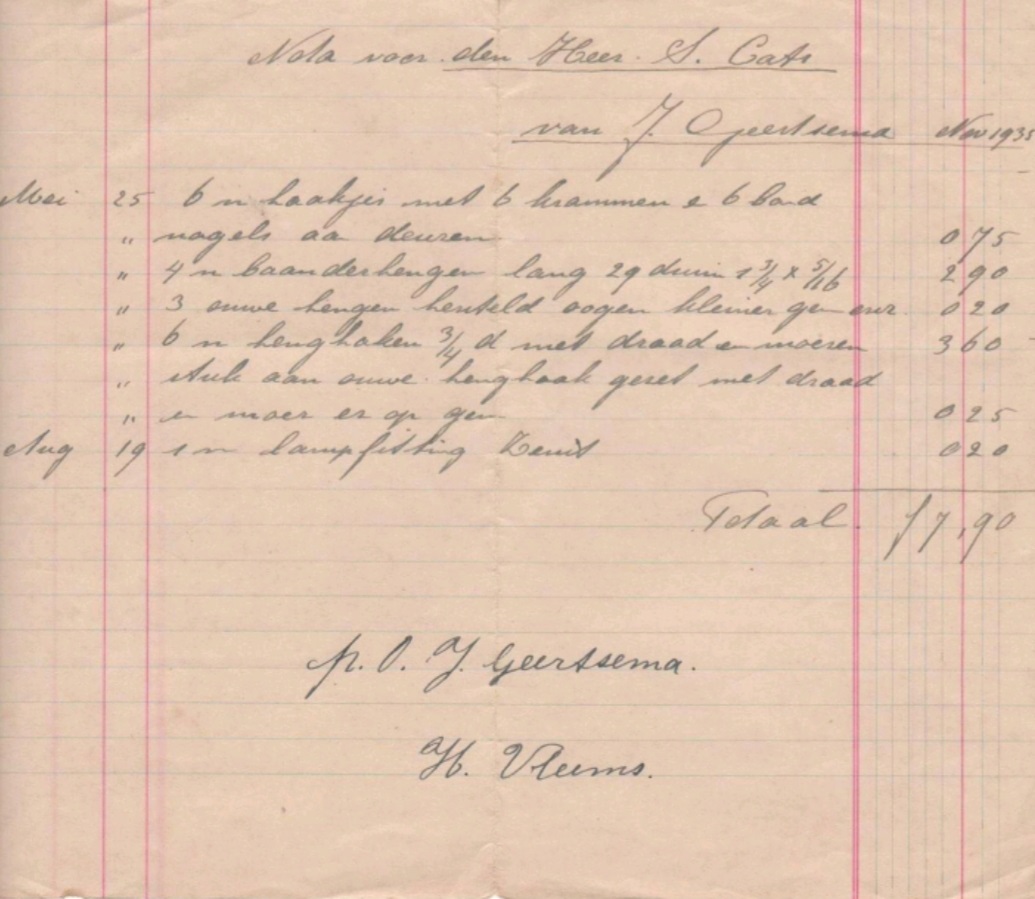 Nota voor den Heer. S. Cats
van J. Geertsema Nov 1935
Mei 25 6 n haakjes met 6 krammen e 6 bord
" nagels aa deuren 0 75
" 4 n baanderhengen lang 29 duim 1 3/4 x 5/16 2 90
" 3 ouwe hengen hersteld oogen kleiner gem enz. 0 20
" 6 n henghaken 3/4 d met draad en moeren 3 60
" stuk aan ouwe henghaak gezet met draad
" en moer er op gem 0 25
Aug 19 1 n lampfitting 0 20
Totaal. f 7,90
p. O. J. Geertsema.
H. Vleems.